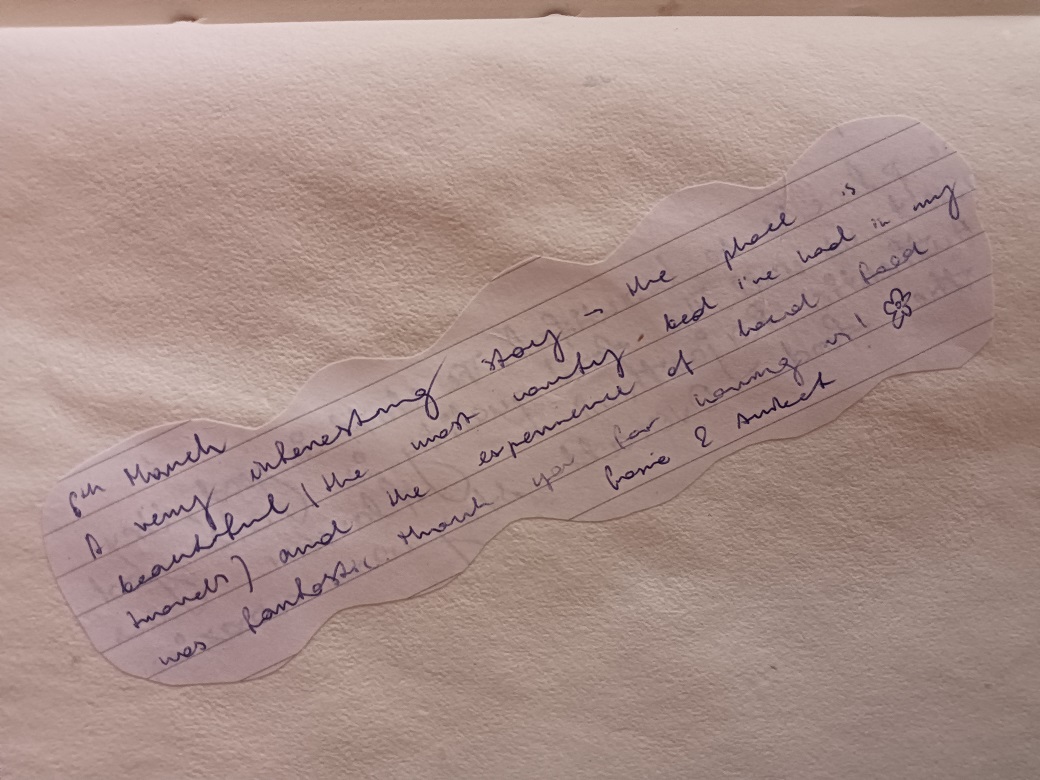 6th March
A very interesting stay - the place is
beautiful (the most comfy bed i've had in my
travels) and the experience of local food
was fantastic. Thank you for having us!
& Aniket